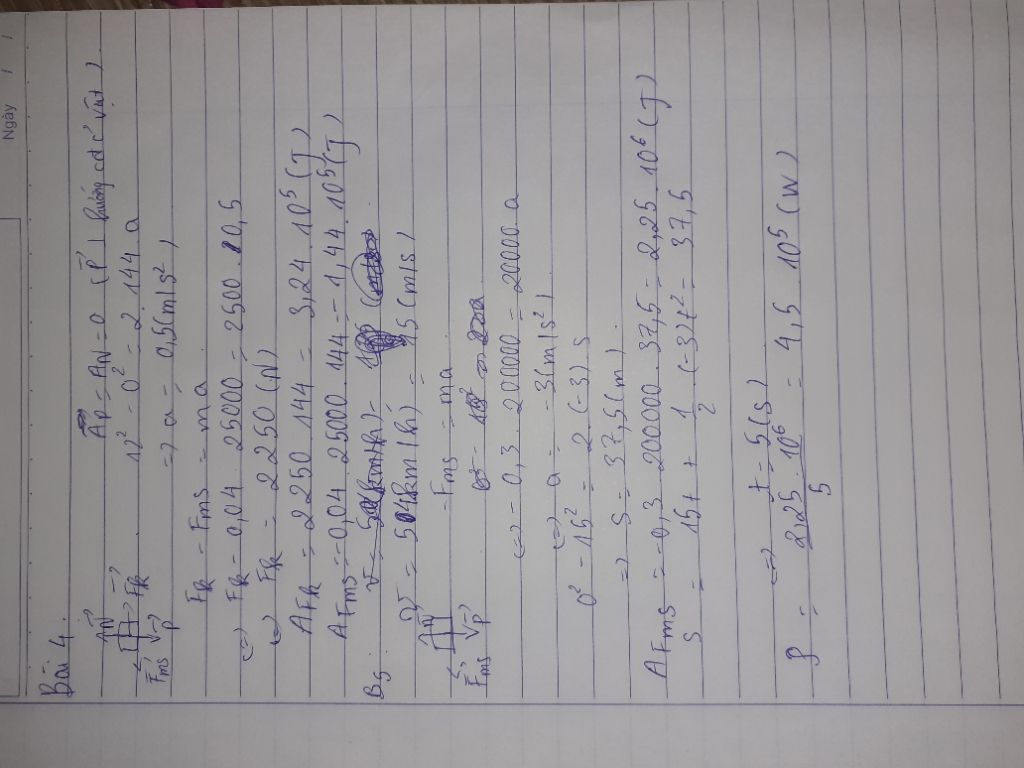 Ngày
Bài 4.
N
Fms Fk P
AP = AN = 0 (P ⊥ hướng cđ vật)
12² - 0² = 2. 144. a
=> a = 0,5 (m/s²)
Fk - Fms = ma
<=> Fk - 0,04. 25000 = 2500. 0,5
<=> Fk = 2250 (N)
AFk = 2250. 144 = 3,24. 10⁵ (J)
AFms = -0,04. 25000. 144 = -1,44. 10⁵ (J)
B5
v = 54 km/h = 15 (m/s)
N
Fms P
- Fms = ma
<=> - 0,3. 200000 = 20000. a
<=> a = - 3 (m/s²)
0² - 15² = 2. (-3) s
=> s = 37,5 (m)
AFms = -0,3. 200000. 37,5 = -2,25. 10⁶ (J)
s = 15t + 1/2. (-3) t² = 37,5
<=> t = 5 (s)
P = 2,25. 10⁶ / 5 = 4,5. 10⁵ (W)